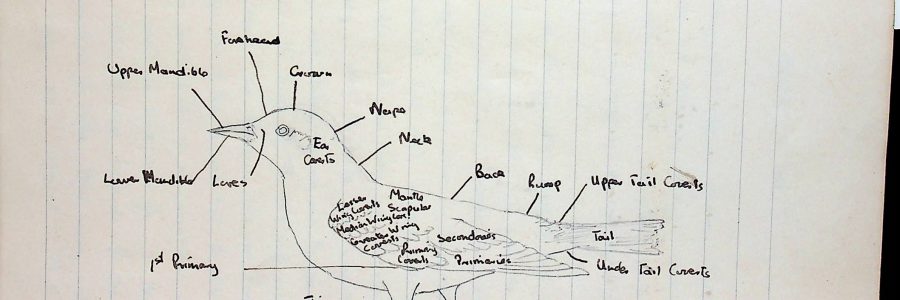 Forehead
Upper Mandible
Crown
Nape
Neck
Ear
Coverts
Lower Mandible
Lores
Back
Rump
Upper Tail Coverts
Lesser
Wing Coverts
Mantle
Scapular
Median Wing Cov.
Greater Wing
Coverts
Secondaries
Tail
Primary
Coverts
Primaries
Under Tail Coverts
1st Primary